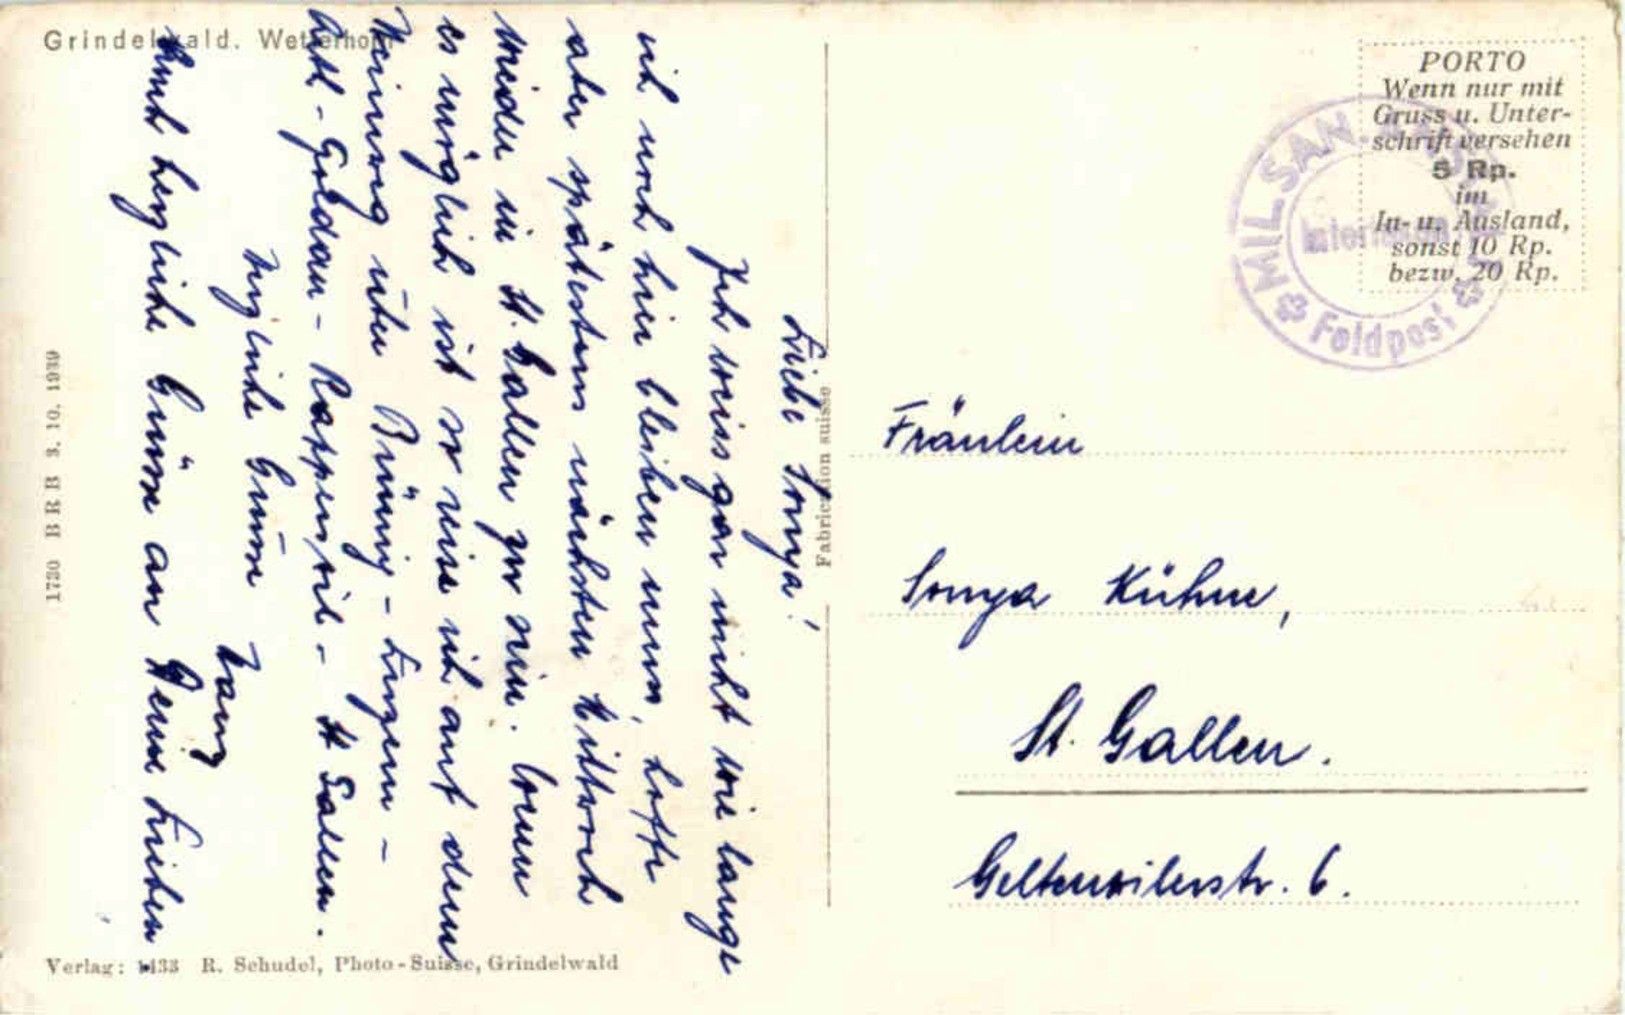 Grindelwald. Wetterhorn
Liebe Sonya!
Ich weiss gar nicht wie lange
ich noch hier bleiben muss, hoffe
aber spätestens nächsten Mittwoch
wieder in St. Gallen zu sein. Wenn
es möglich ist so reise ich auf dem
Heimweg über Brünig - Luzern -
Arth-Goldau - Rapperswil - St Gallen.
Herzliche Grüsse
Hans
Auch herzliche Grüsse an Deine Lieben
1730 BRB 3. 10. 1939
Verlag: 1433 R. Schudel, Photo-Suisse, Grindelwald
Fabrication suisse
PORTO
Wenn nur mit
Gruss u. Unter-
schrift versehen
5 Rp.
im
In- u. Ausland,
sonst 10 Rp.
bezw. 20 Rp.
MIL. SAN.
Feldpost
Fräulein
Sonya Kühne,
St. Gallen.
Geltenwilerstr. 6.